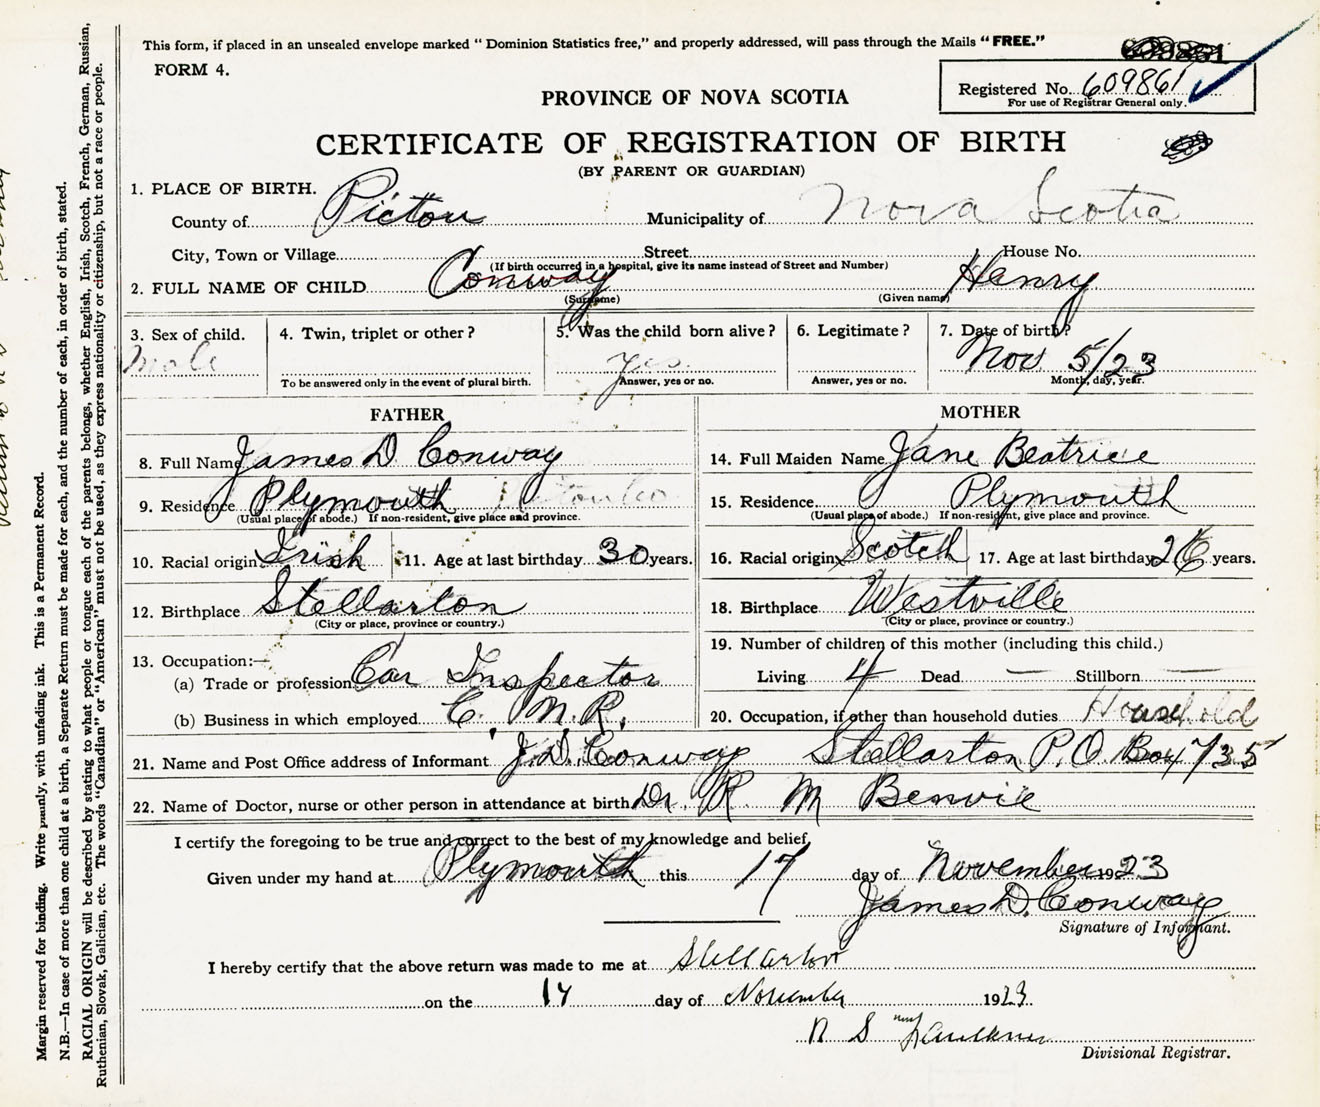 This form, if placed in an unsealed envelope marked "Dominion Statistics free," and properly addressed, will pass through the Mails "FREE."
609861
FORM 4.
Registered No. 609861
For use of Registrar General only.
PROVINCE OF NOVA SCOTIA
CERTIFICATE OF REGISTRATION OF BIRTH
(BY PARENT OR GUARDIAN)
1. PLACE OF BIRTH.
County of Pictou Municipality of Nova Scotia
City, Town or Village Street House No.
(If birth occurred in a hospital, give its name instead of Street and Number)
2. FULL NAME OF CHILD Conway Henry
(Surname) (Given name)
3. Sex of child. 4. Twin, triplet or other? 5. Was the child born alive? 6. Legitimate? 7. Date of birth?
Male yes. Nov 5/23
To be answered only in the event of plural birth. Answer, yes or no. Answer, yes or no. Month, day, year.
FATHER MOTHER
8. Full Name James D Conway 14. Full Maiden Name Jane Beatrice
9. Residence Plymouth Pictou Co 15. Residence Plymouth
(Usual place of abode.) If non-resident, give place and province. (Usual place of abode.) If non-resident, give place and province.
10. Racial origin Irish 11. Age at last birthday 30 years. 16. Racial origin Scotch 17. Age at last birthday 26 years.
12. Birthplace Stellarton 18. Birthplace Westville
(City or place, province or country.) (City or place, province or country.)
19. Number of children of this mother (including this child.)
13. Occupation:—
(a) Trade or profession Car Inspector Living 4 Dead — Stillborn —
(b) Business in which employed C. N. R. 20. Occupation, if other than household duties Household
21. Name and Post Office address of Informant J. D. Conway Stellarton P.O. Box 735
22. Name of Doctor, nurse or other person in attendance at birth Dr. R M Benvie
I certify the foregoing to be true and correct to the best of my knowledge and belief,
Given under my hand at Plymouth this 17 day of November 1923
James D. Conway
Signature of Informant.
I hereby certify that the above return was made to me at Stellarton
on the 17 day of November 1923.
N S Faulkner
Divisional Registrar.
Margin reserved for binding. Write plainly, with unfading ink. This is a Permanent Record.
N.B.—In case of more than one child at a birth, a Separate Return must be made for each, and the number of each, in order of birth, stated.
RACIAL ORIGIN will be described by stating to what people or tongue each of the parents belongs, whether English, Irish, Scotch, French, German, Russian,
Ruthenian, Slovak, Galician, etc. The words "Canadian" or "American" must not be used, as they express nationality or citizenship, but not a race or people.